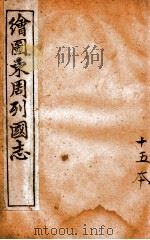 繪圖東周列國志
十五本